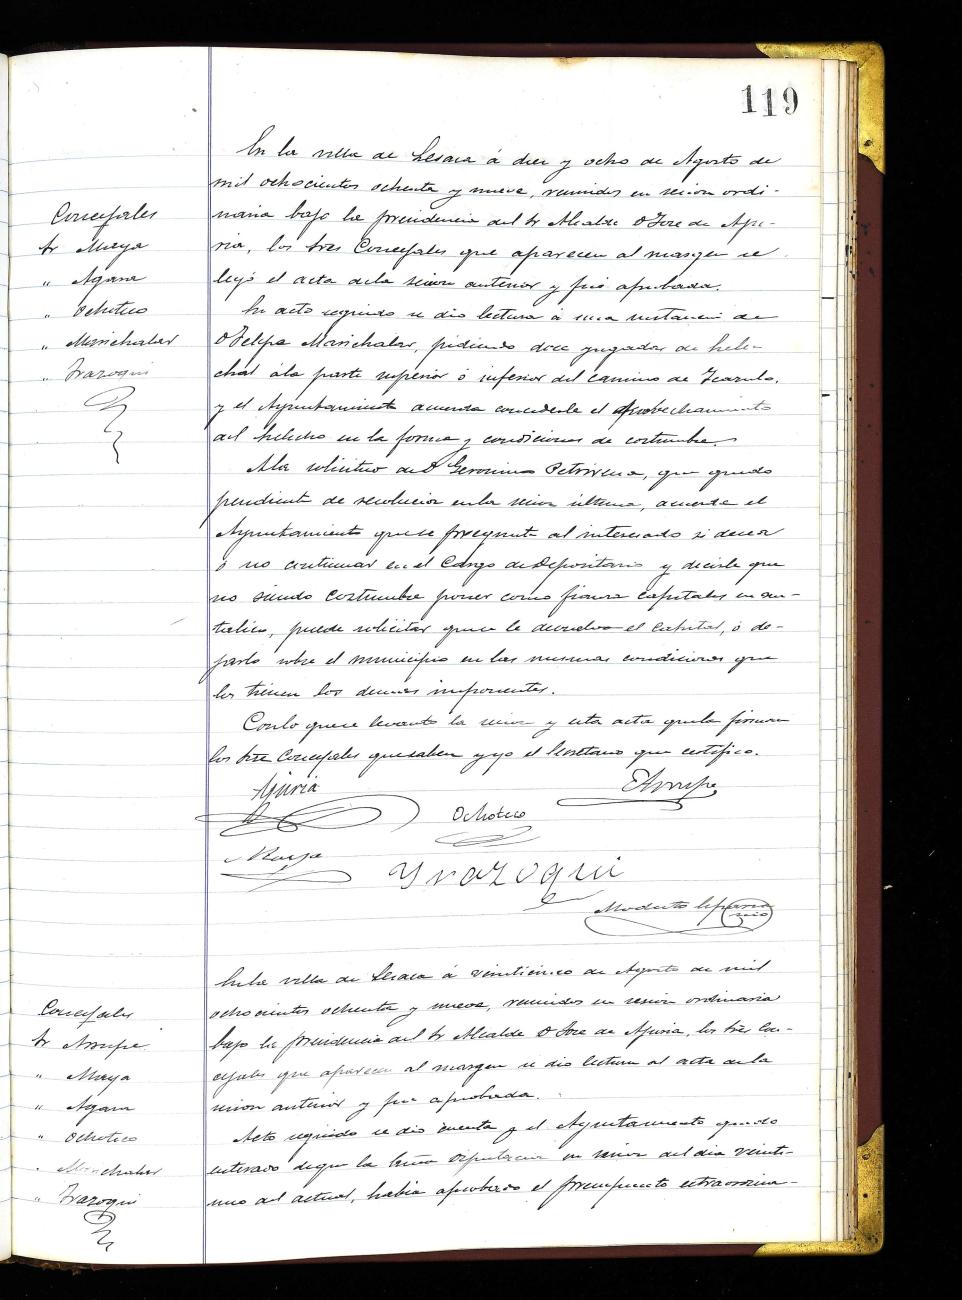 119
En la villa de Lesaca á diez y ocho de Agosto de
mil ochocientos ochenta y nueve, reunidos en sesion ordi-
naria bajo la presidencia del Sr Alcalde D Jose de Aju-
ria, los Sres Concejales que aparecen al margen se
leyó el acta de la sesion anterior y fué aprobada.
Concejales
Sr Maya
" Agara
" Ochoteco
" Marichalar
" Irazoqui
En acto seguido se dio lectura á una instancia de
D Felipe Marichalar, pidiendo doce yugadas de hele-
chal á la parte superior ó inferior del camino de
y el Ayuntamiento acuerda concederle el aprobechamiento
del helecho en la forma y condiciones de costumbre
A la solicitud de D Geronimo Petrirena, que quedo
pendiente de resolucion en la sesion última, acuerda el
Ayuntamiento que se pregunte al interesado si desea
ó no continuar en el Cargo de Depositario y decirle que
no siendo costumbre poner como fianza capitales en me-
talico, puede solicitar que se le devuelva el capital, ó de-
jarlo sobre el municipio en las mismas condiciones que
los tienen los demas imponentes.
Con lo que se levanto la sesion y esta acta que la firman
los Sres Concejales que saben y yo el Secretario que certifico.
Ajuria
EArrupe
Ochoteco
Maya
Yrazoqui
Modesto
Srio
En la villa de Lesaca á veinticinco de Agosto de mil
ochocientos ochenta y nueve, reunidos en sesion ordinaria
bajo la presidencia del Sr Alcalde D Jose de Ajuria, los Sres Con-
cejales que aparecen al margen se dio lectura al acta de la
sesion anterior y fue aprobada.
Concejales
Sr Arrupe
" Maya
" Agara
" Ochoteco
" Marichalar
" Irazoqui
Acto seguido se dio cuenta y el Ayuntamiento quedo
enterado de que la Excma Diputacion en sesion del dia veinti-
uno del actual, habia aprobado el presupuesto extraordina-